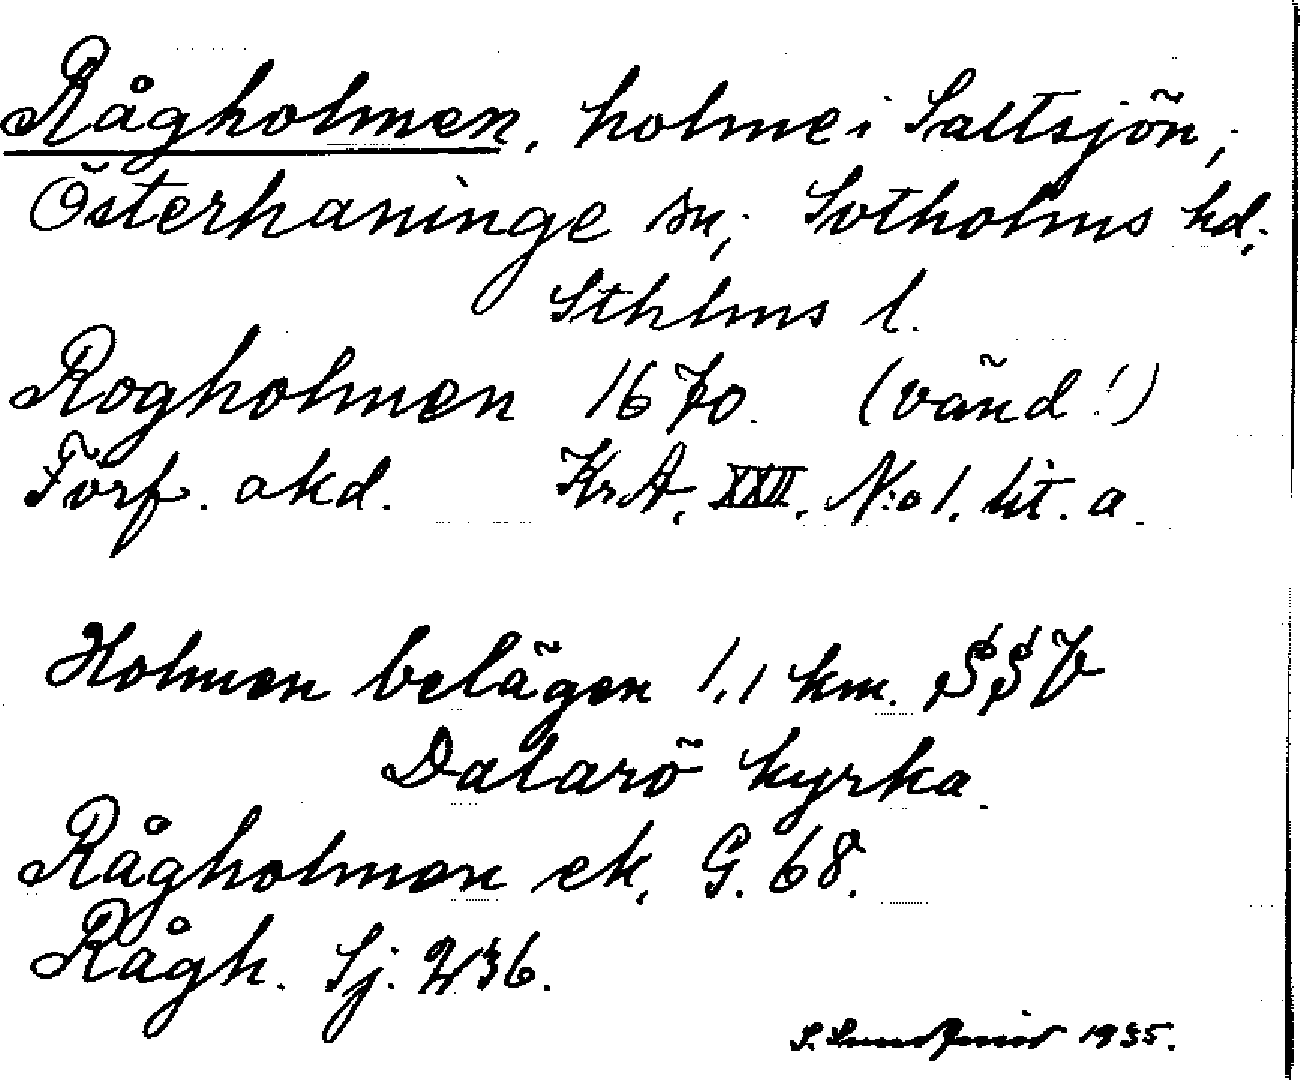 Rågholmen, holme i Saltsjön,
Österhaninge sn, Sotholms hd,
Sthlms l.
Rogholmen 1670. (vänd!)
Förf. akd. KrA, XXII, N:o 1. lit. a.
Holmen belägen 1,1 km. SSV
Dalarö kyrka.
Rågholmen ek. G. 68.
Rågh. Sj. 236.
S. 1935.